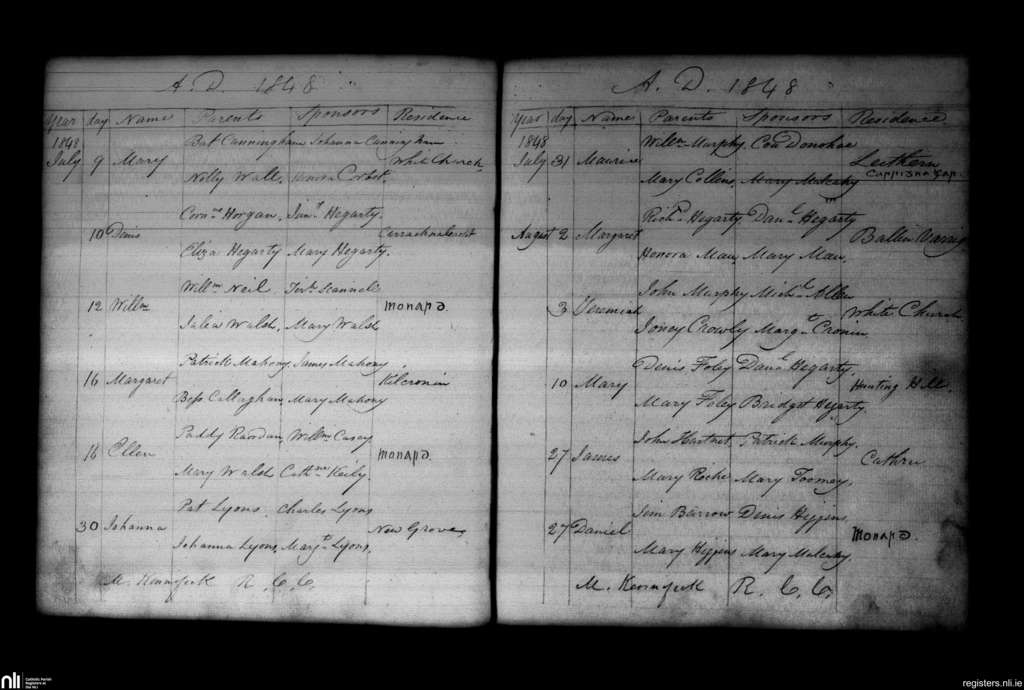 A. D. 1848
Year day Name Parents Sponsors Residence
1848 Bat Cunningham Johanna Cunningham
July 9 Mary White Church
Nelly Wall, Honora Corbet,
Corns Horgan, Hegarty.
10 Denis
Eliza Hegarty Mary Hegarty.
Willm Neil
12 Willm Monard.
Julia Walsh, Mary Walsh
Patrick Mahony, James Mahony
16 Margaret Kilcronin
Bess Callaghan, Mary Mahony
Paddy Riordan, Willm Casey
16 Ellen Monard.
Mary Walsh Cathne Keily.
Pat Lyons. Charles Lyons
30 Johanna New Grove
Johanna Lyons, Margt Lyons,
M. R. C. C.
A. D. 1848
Year day Name Parents Sponsors Residence
1848 Willm Murphy, Con Donohoe
July 31 Maurice
Mary Collins, Mary Mulcahy
Richd Hegarty Danl Hegarty
August 2 Margaret
Honora Mau, Mary Mau,
John Murphy Michl Allen
3 Jeremiah White Church
Joney Crowly Margt Cronin
Denis Foley Danl Hegarty.
10 Mary Hunting Hill,
Mary Foley Bridget Hegarty
John Hartnet, Patrick Murphy.
27 James
Mary Roche Mary Toomey,
Jim Barrow Denis Higgens,
27 Daniel Monard.
Mary Higgens Mary Mulcahy.
M. R. C. C.
nli Catholic Parish Registers at the NLI
registers.nli.ie